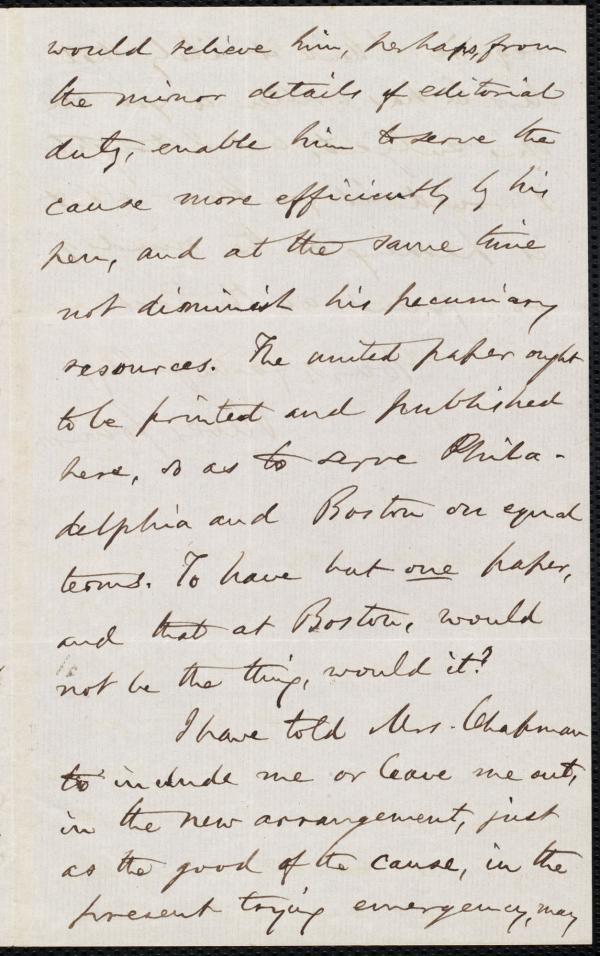 would relieve him, perhaps, from
the minor details of editorial
duty, enable him to serve the
cause more efficiently by his
pen, and at the same time
not diminish his pecuniary
resources. The united paper ought
to be printed and published
here, so as to serve Phila-
delphia and Boston on equal
terms. To have but one paper,
and that at Boston, would
not be the thing, would it?
I have told Mrs. Chapman
to include me or leave me out,
in the new arrangement, just
as the good of the cause, in the
present trying emergency, may